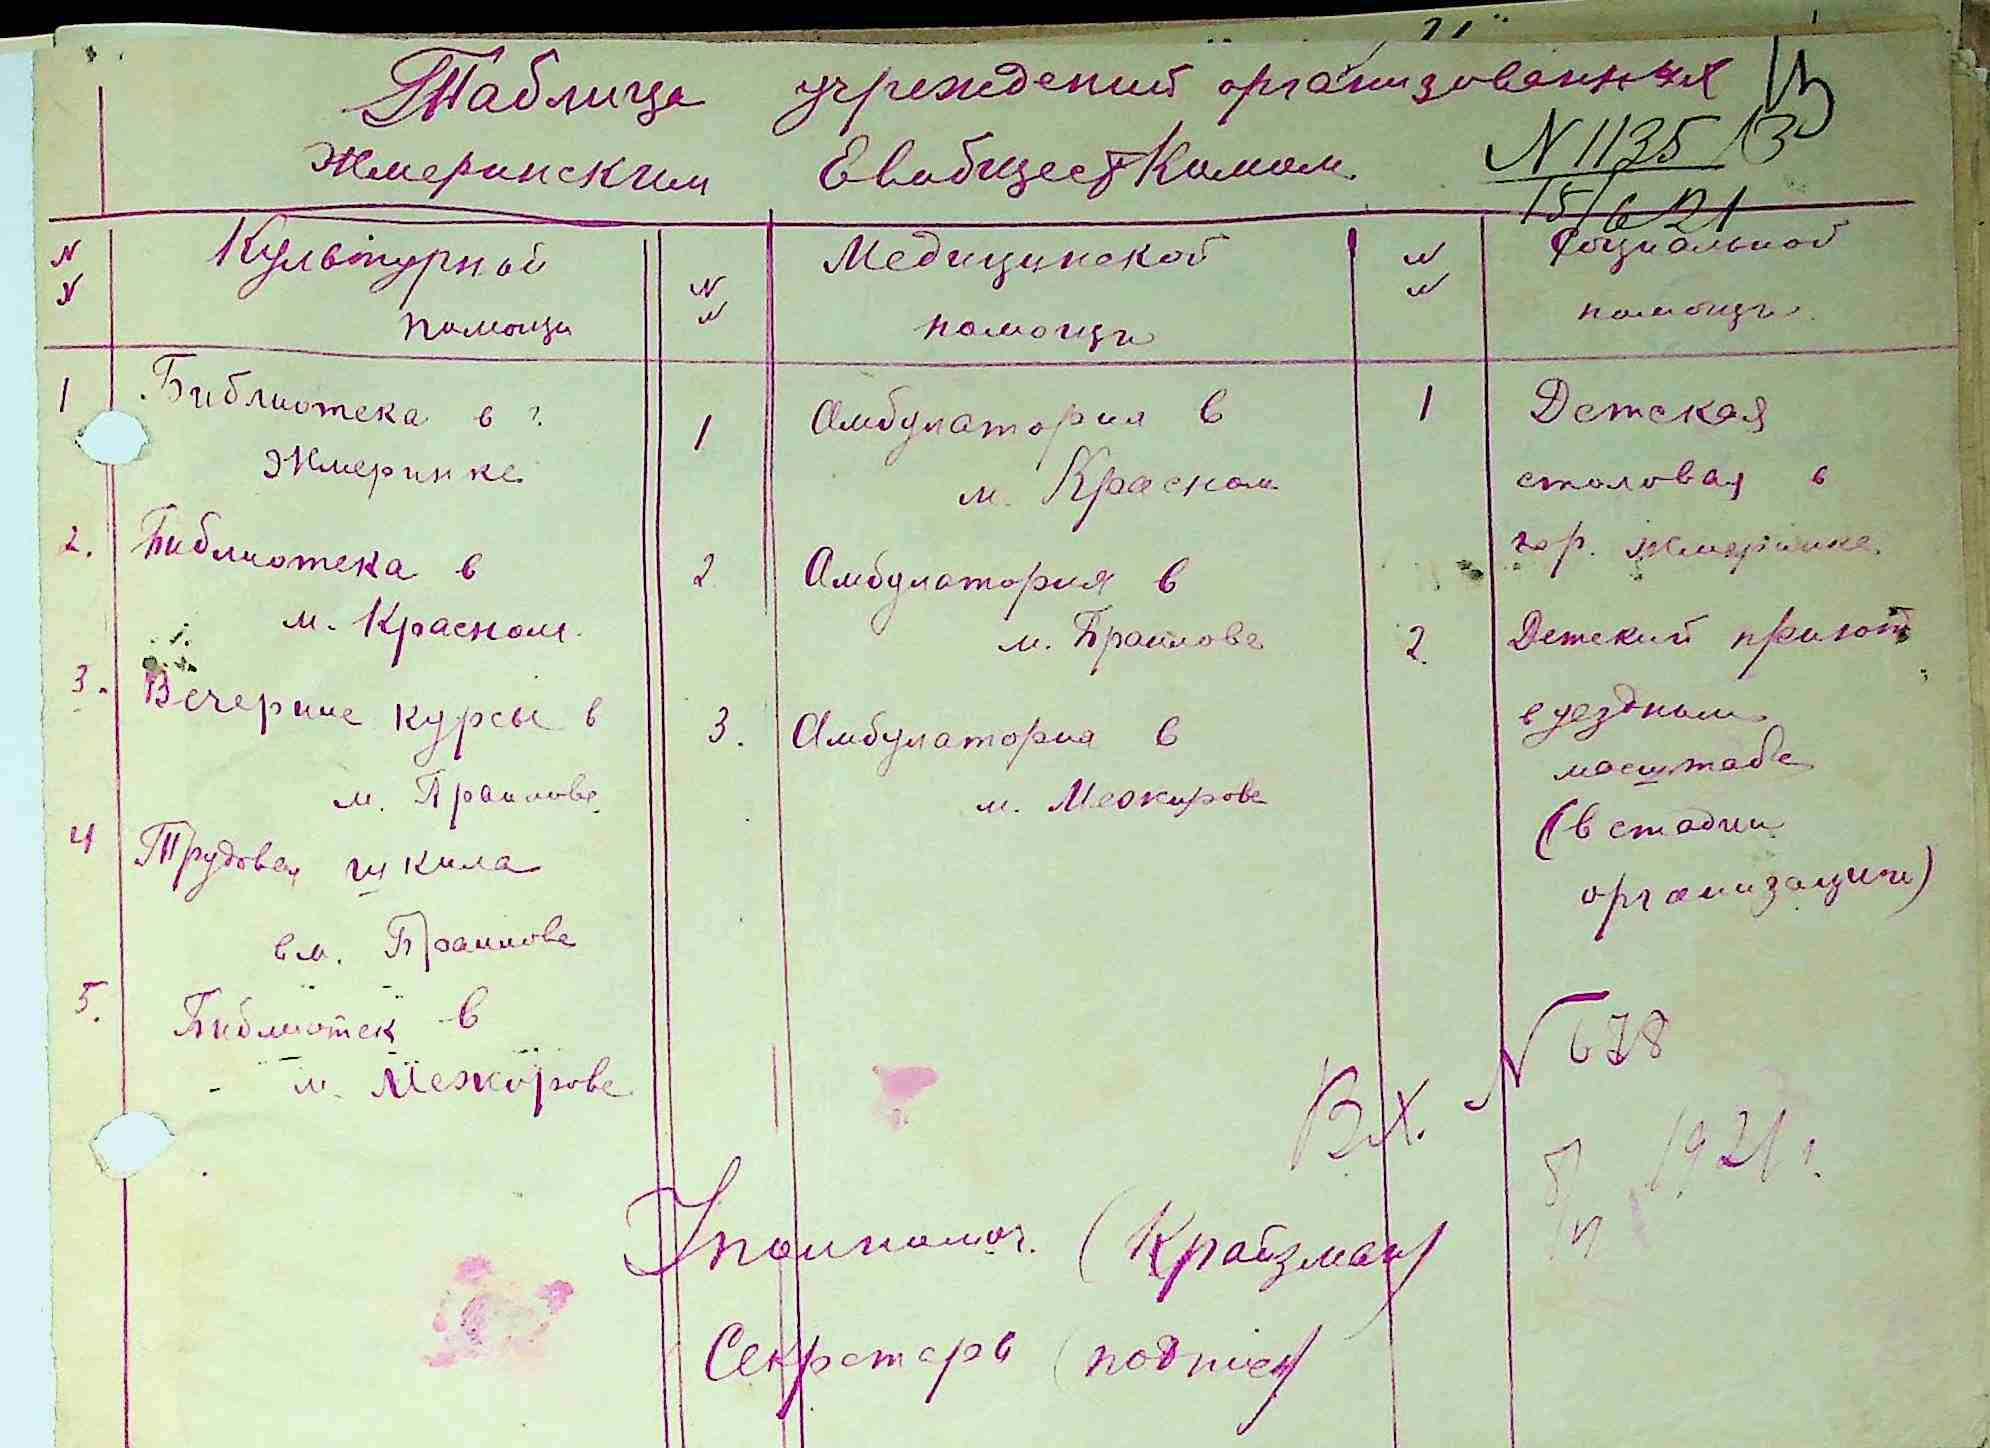 Таблица учреждений организованных
Жмеринским ЕвобщестКомом.
N 1135
15/6 21
N N
Культурной
помощи
N N
Медицинской
помощи
N N
Социальной
помощи
1 Библиотека в г.
Жмеринке
2. Библиотека в
м. Красном.
3. Вечерние курсы в
м. Браилове
4 Трудовая школа
в м. Браилове
5. Библиотек в
м. Межирове
1 Амбулатория в
м. Красном
2 Амбулатория в
м. Браилове
3. Амбулатория в
м. Межирове
1 Детская
столовая в
гор. Жмеринке
2. Детский приют
в уездном
масштабе
(в стадии
организации)
Вх. N 678
1921 г.
Уполномоч. (Крайзман)
Секретарь (подпись)